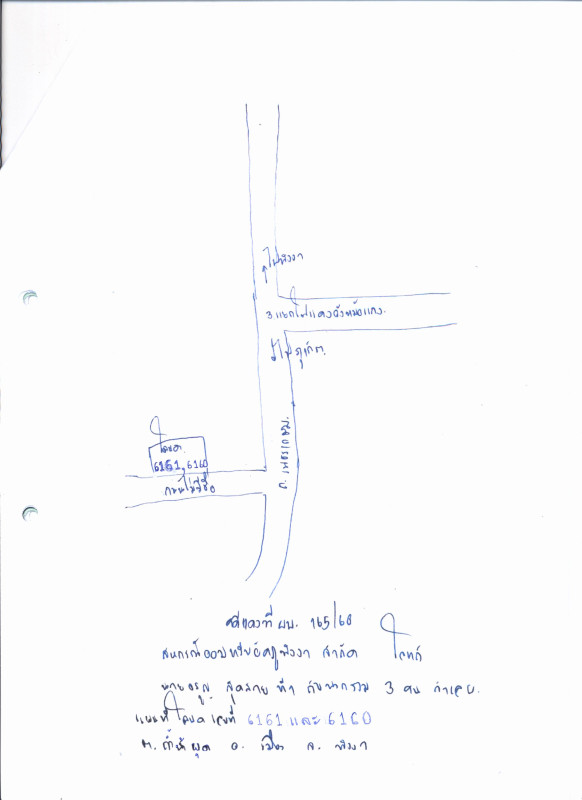 ไปพังงา
3 แยกไฟแดงวังหม้อแกง.
ไปภูเก็ต.
ถ. เพชรเกษม.
โฉนด.
6161, 6160
ถนนไม่มีชื่อ
คดีแดงที่ ผบ. 165/60
สหกรณ์ออมทรัพย์ครูพังงา จำกัด โจทก์
นาย สุดสาย ที่1 กับพวกรวม 3 คน จำเลย.
แผนที่ โฉนด เลขที่ 6161 และ 6160
ต. ถ้ำน้ำผุด อ. เมือง จ. พังงา